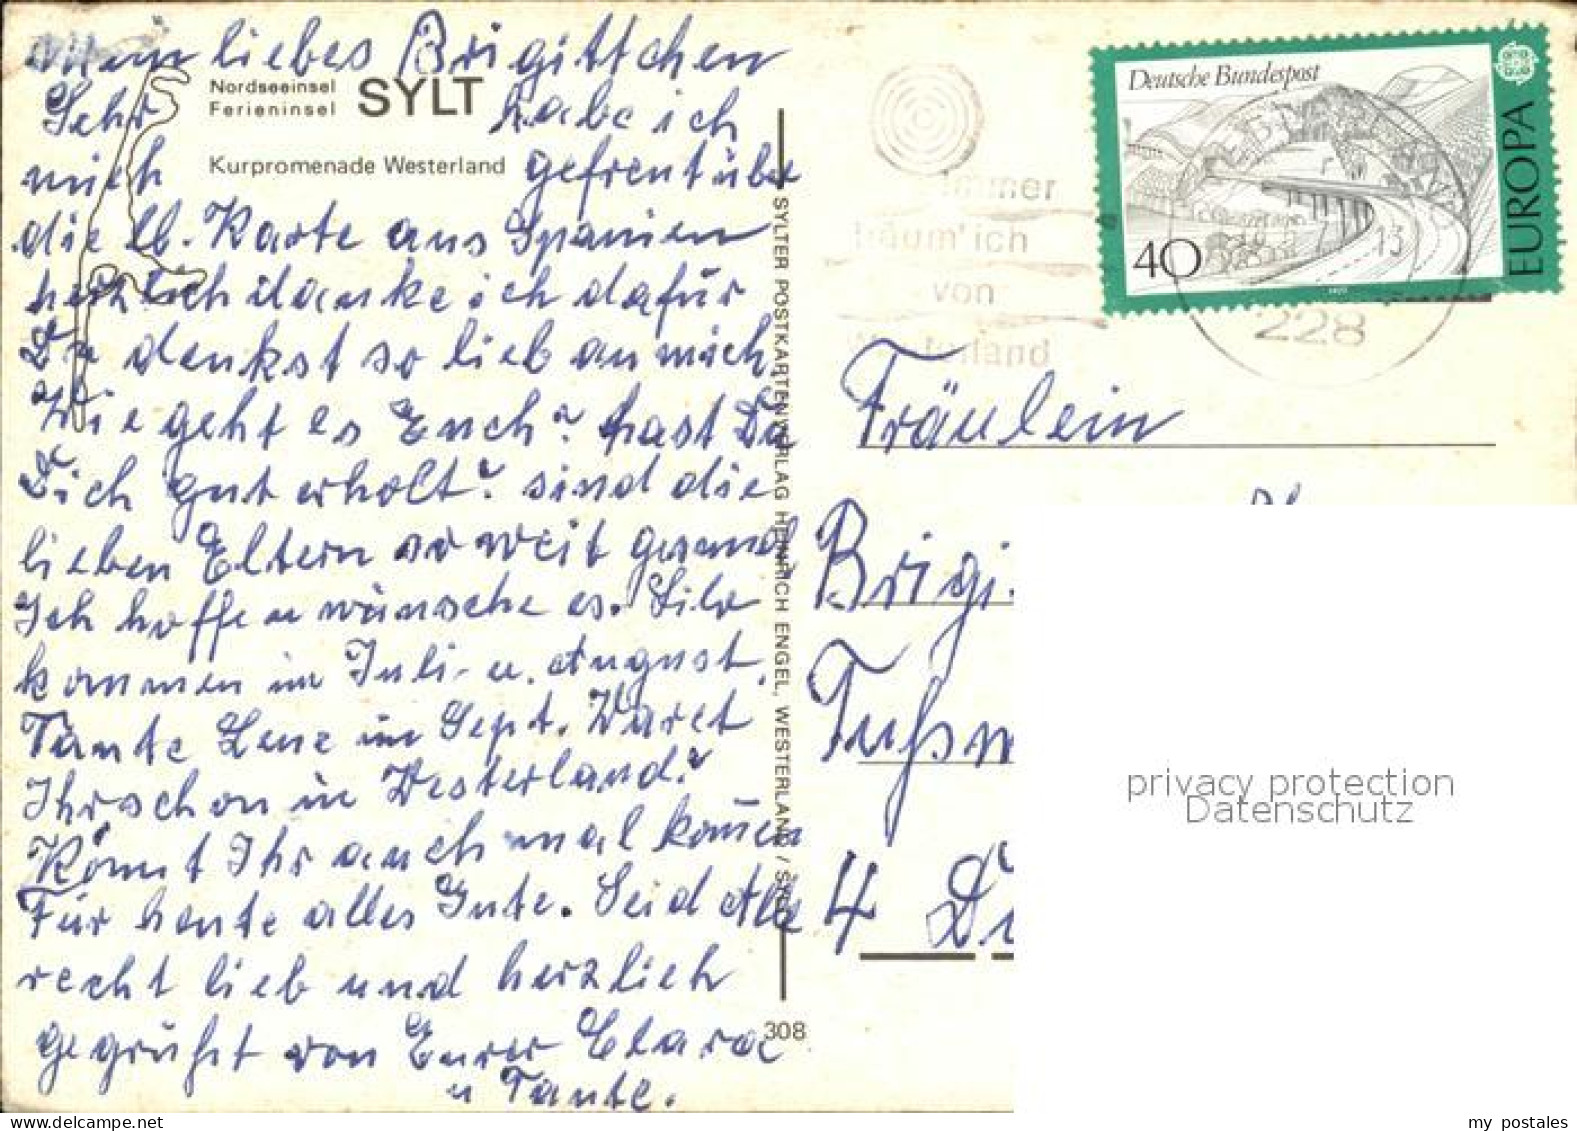 Mein liebes Brigittchen
Nordseeinsel
Ferieninsel SYLT
Sehr habe ich
Kurpromenade Westerland
mich gefreut über
die lb. Karte aus Spanien
herzlich danke ich dafür
Du denkst so lieb an mich.
Wie geht es Euch? hast Du
Dich gut erholt? sind die
lieben Eltern so weit gesund
Ich hoffe u wünsche es. Lilo
kommen im Juli- u. August.
Tante Lene im Sept. Waret
Ihr schon in Westerland?
Könnt Ihr auch mal kommen
Für heute alles Gute. Seid Alle
recht lieb und herzlich
gegrüßt von Eurer Clara
u Tante.
SYLTER POSTKARTENVERLAG HEINRICH ENGEL, WESTERLAND / SYLT
308
immer
träum' ich
von
Westerland
Deutsche Bundespost
40
EUROPA
13
228
Fräulein
Brigi
4 Dü
privacy protection
Datenschutz
my postales